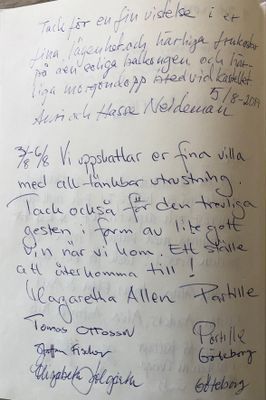 Tack för en fin vistelse i er
fina lägenhet och härliga frukostar
på den soliga balkongen och här-
liga morgondopp vid kastellet
5/8-2019
Anri och Hasse Neideman
3/8-6/8 Vi uppskattar er fina villa
med all tänkbar utrustning.
Tack också för den trevliga
gesten i form av lite gott
vin när vi kom. Ett ställe
att återkomma till!
Margaretha Allen Partille
Tomas Ottosson Partille
Fischer Göteborg
Elisabeth Göteborg